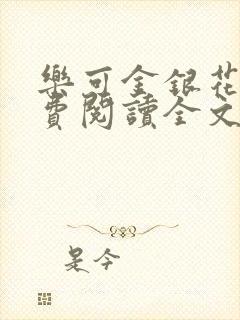 樂可金銀花
費閱讀全文
是今